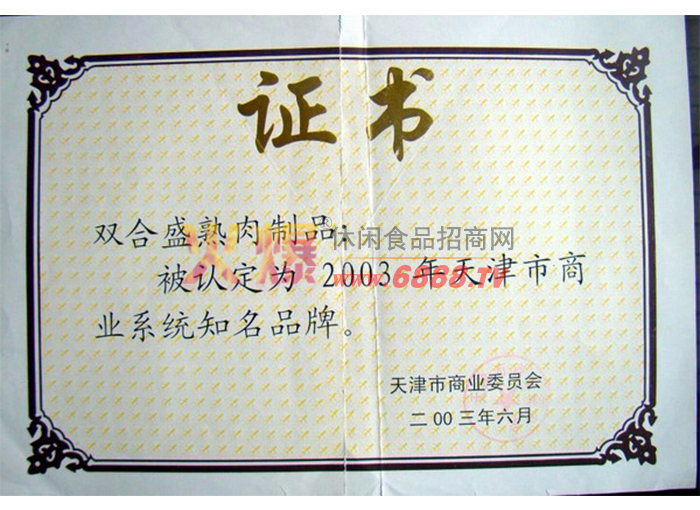 证书
双合盛熟肉制品：
被认定为 2003 年天津市商
业系统知名品牌。
天津市商业委员会
二00三年六月
火爆®
休闲食品招商网
www.6868.TV